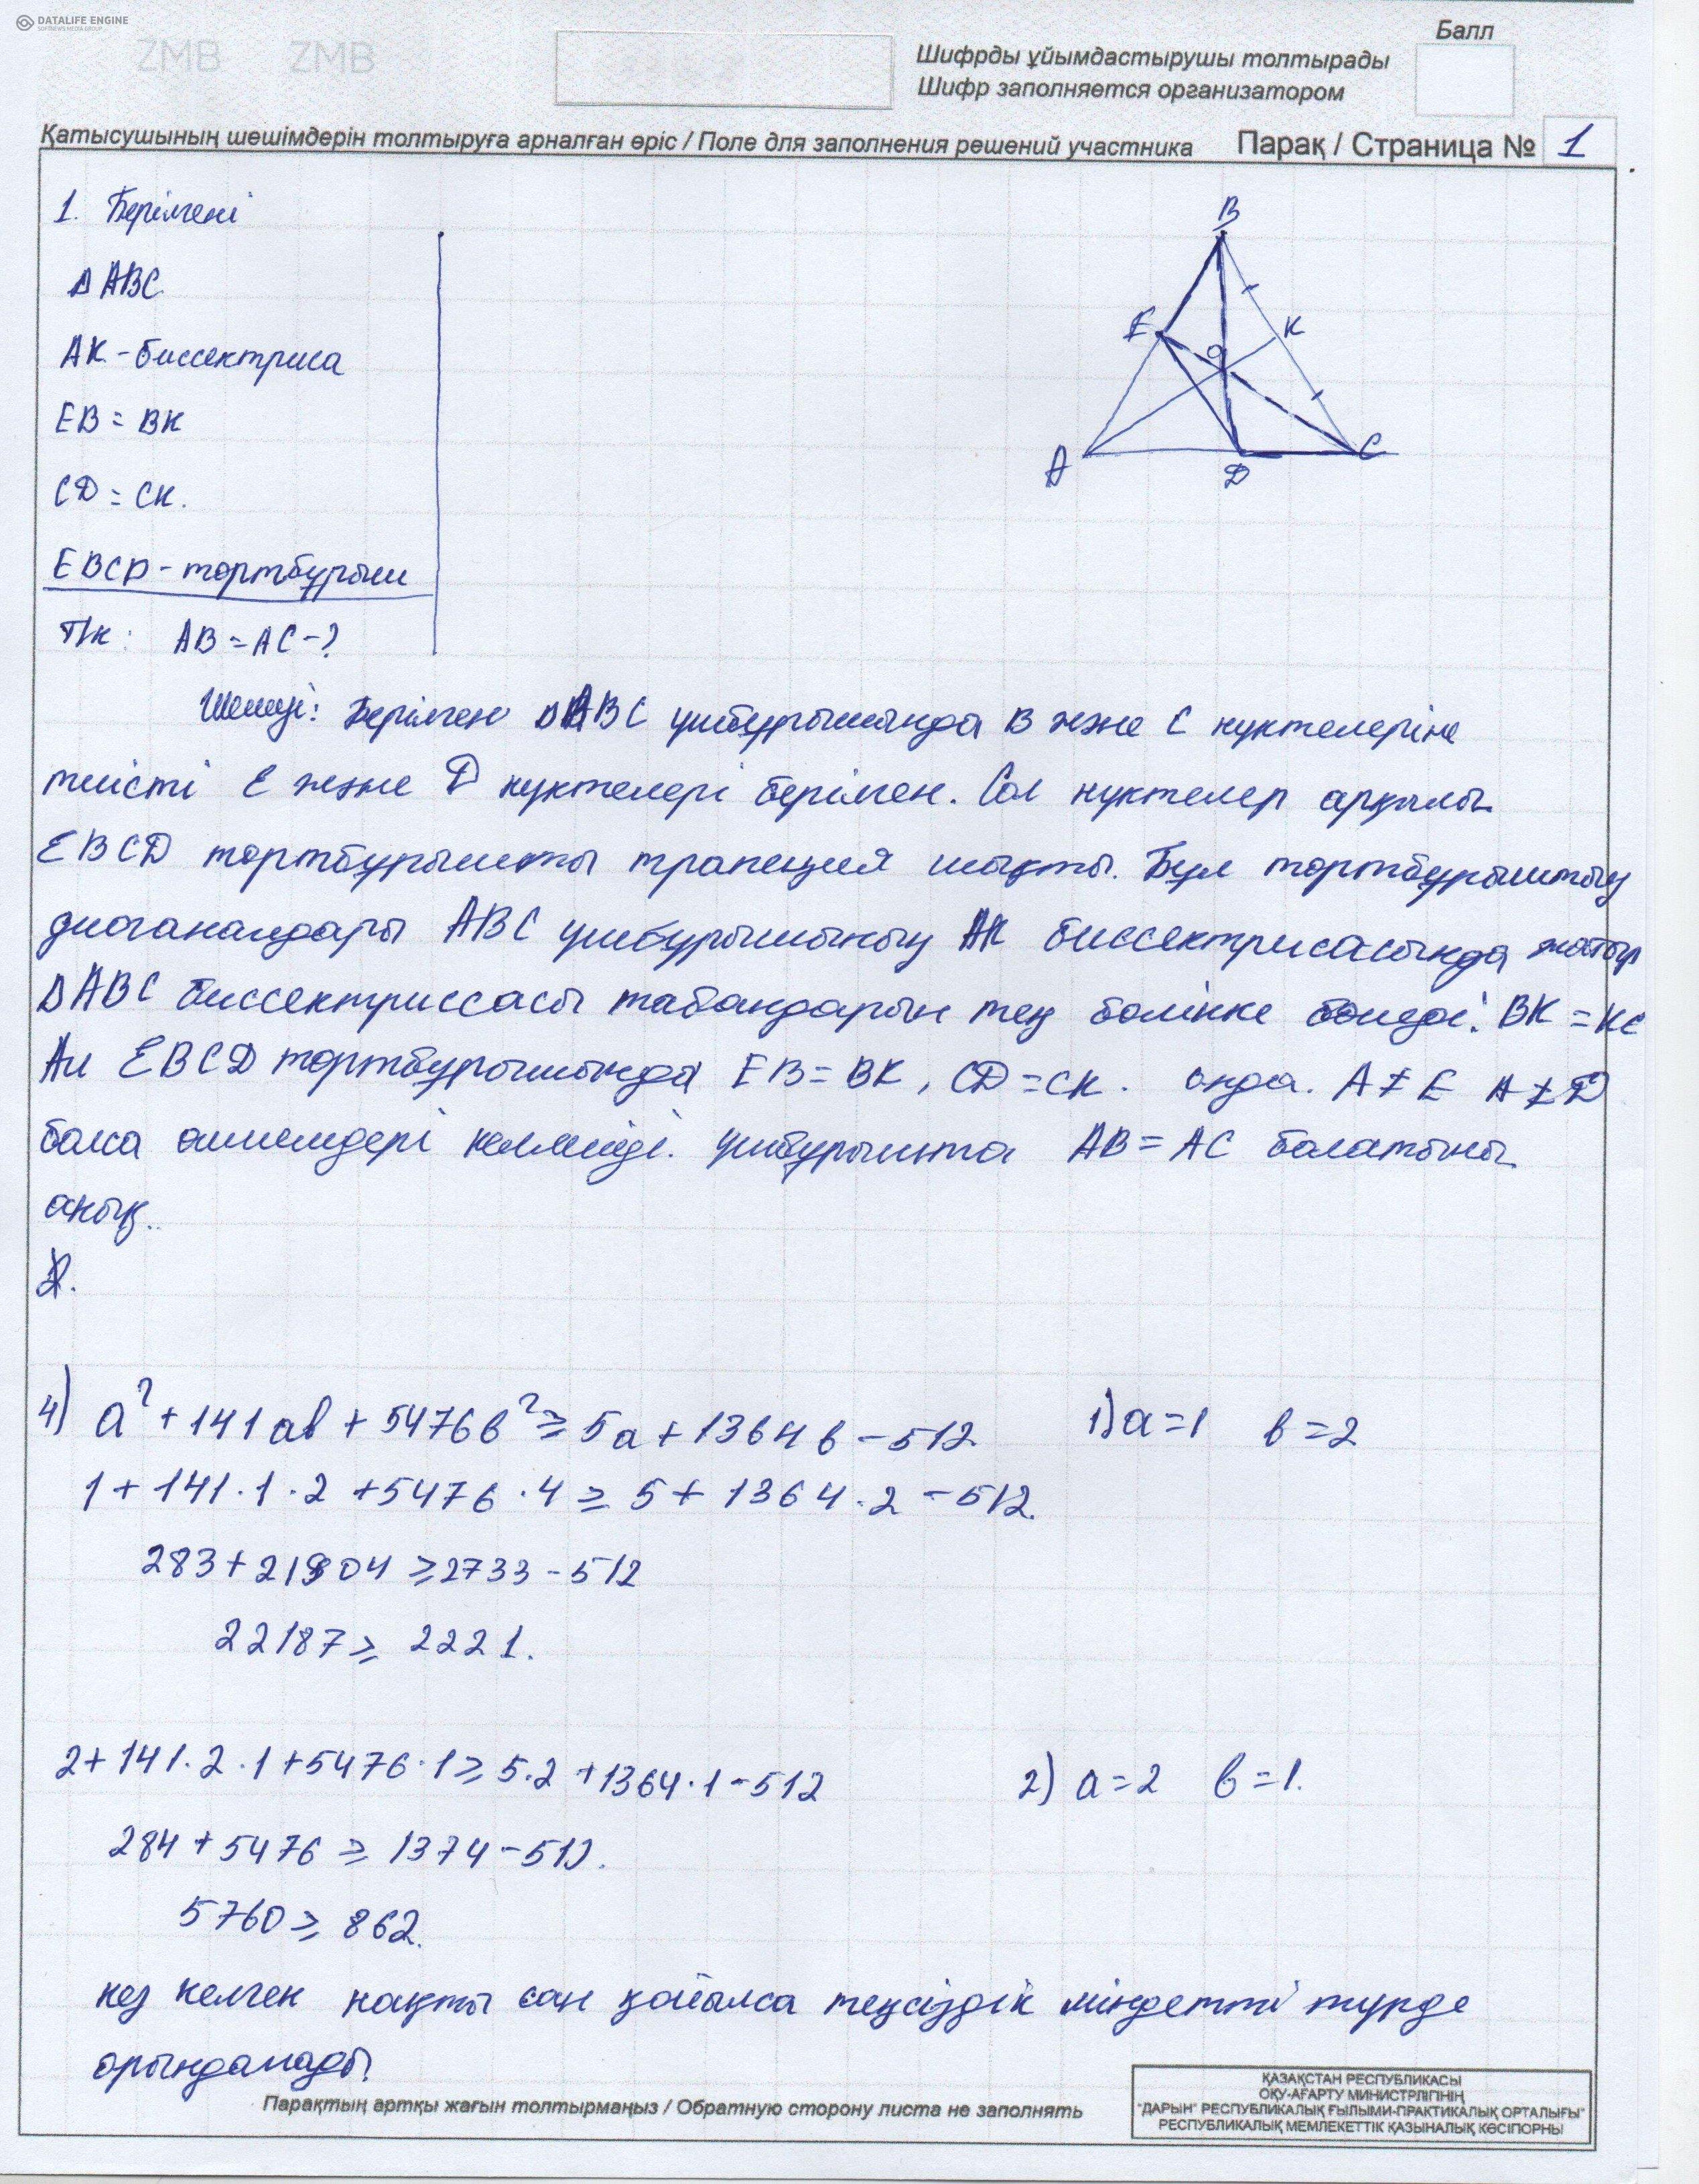 DATALIFE ENGINE
SOFTNEWS MEDIA GROUP
ZMB ZMB
Балл
Шифрды ұйымдастырушы толтырады
Шифр заполняется организатором
Қатысушының шешімдерін толтыруға арналған өріс / Поле для заполнения решений участника Парақ / Страница № 1
1. Берілгені
Δ ABC
AK - биссектриса
EB = BK
CD = CK.
EBCD - төртбұрыш
Т/к: AB = AC - ?
B
E
K
O
A
D
C
Шешуі: Берілген ΔABC үшбұрышында B және C нүктелеріне
тиісті E және D нүктелері берілген. Сол нүктелер арқылы
EBCD төртбұрышты трапеция шықты. Бұл төртбұрыштың
диоганалдары ABC үшбұрышының AK биссектрисасында жатыр
ΔABC биссектриссасы табандарын тең бөлікке бөледі. BK = KC
Ал EBCD төртбұрышында EB = BK, CD = CK. онда. A ≠ E A ≠ D
болса өлшемдері келмейді. үшбұрышта AB = AC болатыны
анық..
4) a² + 141ab + 5476b² ≥ 5a + 1364b - 512 1) a = 1 b = 2
1 + 141·1·2 + 5476·4 ≥ 5 + 1364·2 - 512.
283 + 21904 ≥ 2733 - 512
22187 ≥ 2221.
2 + 141·2·1 + 5476·1 ≥ 5·2 + 1364·1 - 512 2) a = 2 b = 1.
284 + 5476 ≥ 1374 - 512.
5760 ≥ 862.
кез келген нақты сан қойылса теңсіздік міндетті түрде
орындалады.
Парақтың артқы жағын толтырмаңыз / Обратную сторону листа не заполнять
ҚАЗАҚСТАН РЕСПУБЛИКАСЫ
ОҚУ-АҒАРТУ МИНИСТРЛІГІНІҢ
"ДАРЫН" РЕСПУБЛИКАЛЫҚ ҒЫЛЫМИ-ПРАКТИКАЛЫҚ ОРТАЛЫҒЫ"
РЕСПУБЛИКАЛЫҚ МЕМЛЕКЕТТІК ҚАЗЫНАЛЫҚ КӘСІПОРНЫ